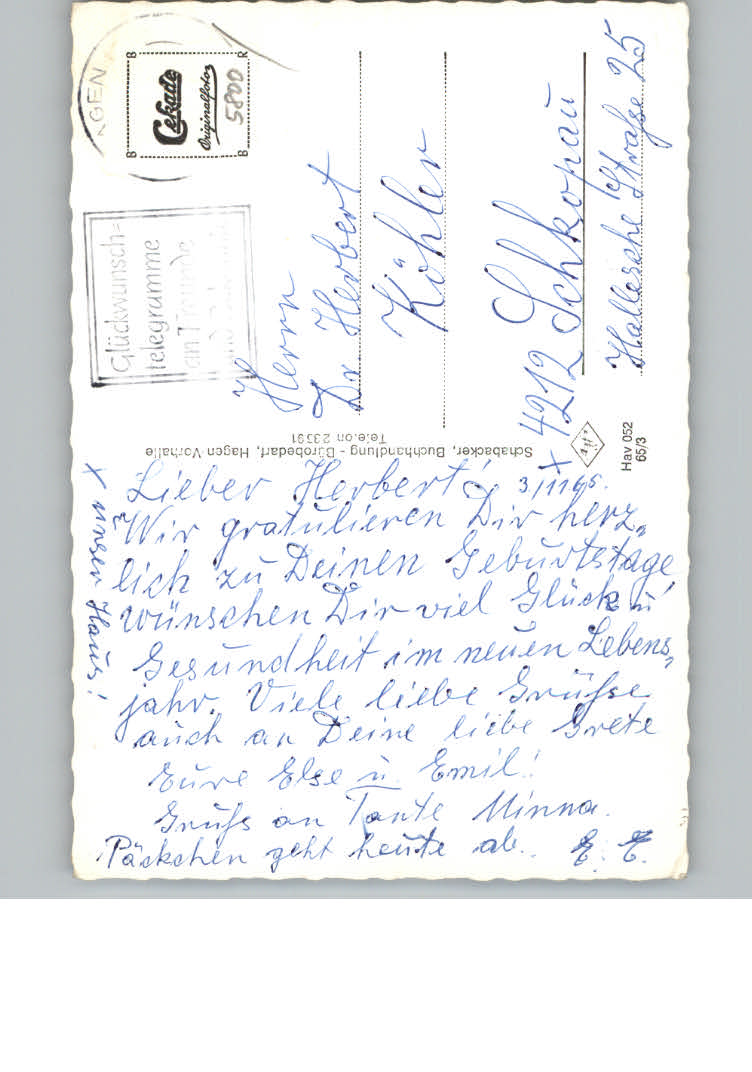 Lieber Herbert!
3/11 65.
Wir gratulieren Dir herz„
lich zu Deinen Geburtstage,
wünschen Dir viel Glück u
Gesundheit im neuen Lebens„
jahr. Viele liebe Grüße
auch an Deine liebe Grete
Eure Else u. Emil!
Gruß an Tante Minna.
Päckchen geht heute ab. E. E.
X unser Haus!
Herrn
Dr Herbert
Köhler
4212 Schkopau
Hallesche Straße 25
Schabacker, Buchhandlung - Bürobedarf, Hagen-Vorhalle
Telefon 23391
Agfa
Hav 052
65/3
Glückwunsch=
telegramme
an Freunde
und
B R
Cekade
Originalfoto
5800
B B
AGEN